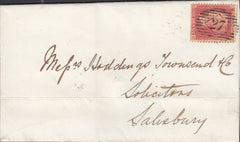 Messrs Hoddings Townsend & Co
Solicitors
Salisbury